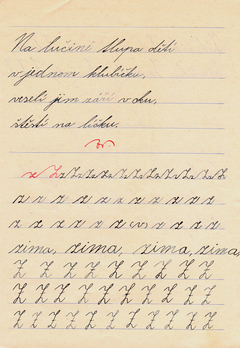 Na lučině tlupa dětí
v jednom klubíčku,
veselí jim září v oku,
štěstí na líčku.
z Z z Z z Z z Z z Z z Z z Z z Z
z z z z z z z z z z
z z z z z z z z z
zima, zima, zima, zima,
Z Z Z Z Z Z Z Z Z
Z Z Z Z Z Z Z Z Z Z
Z Z Z Z Z Z Z Z Z Z